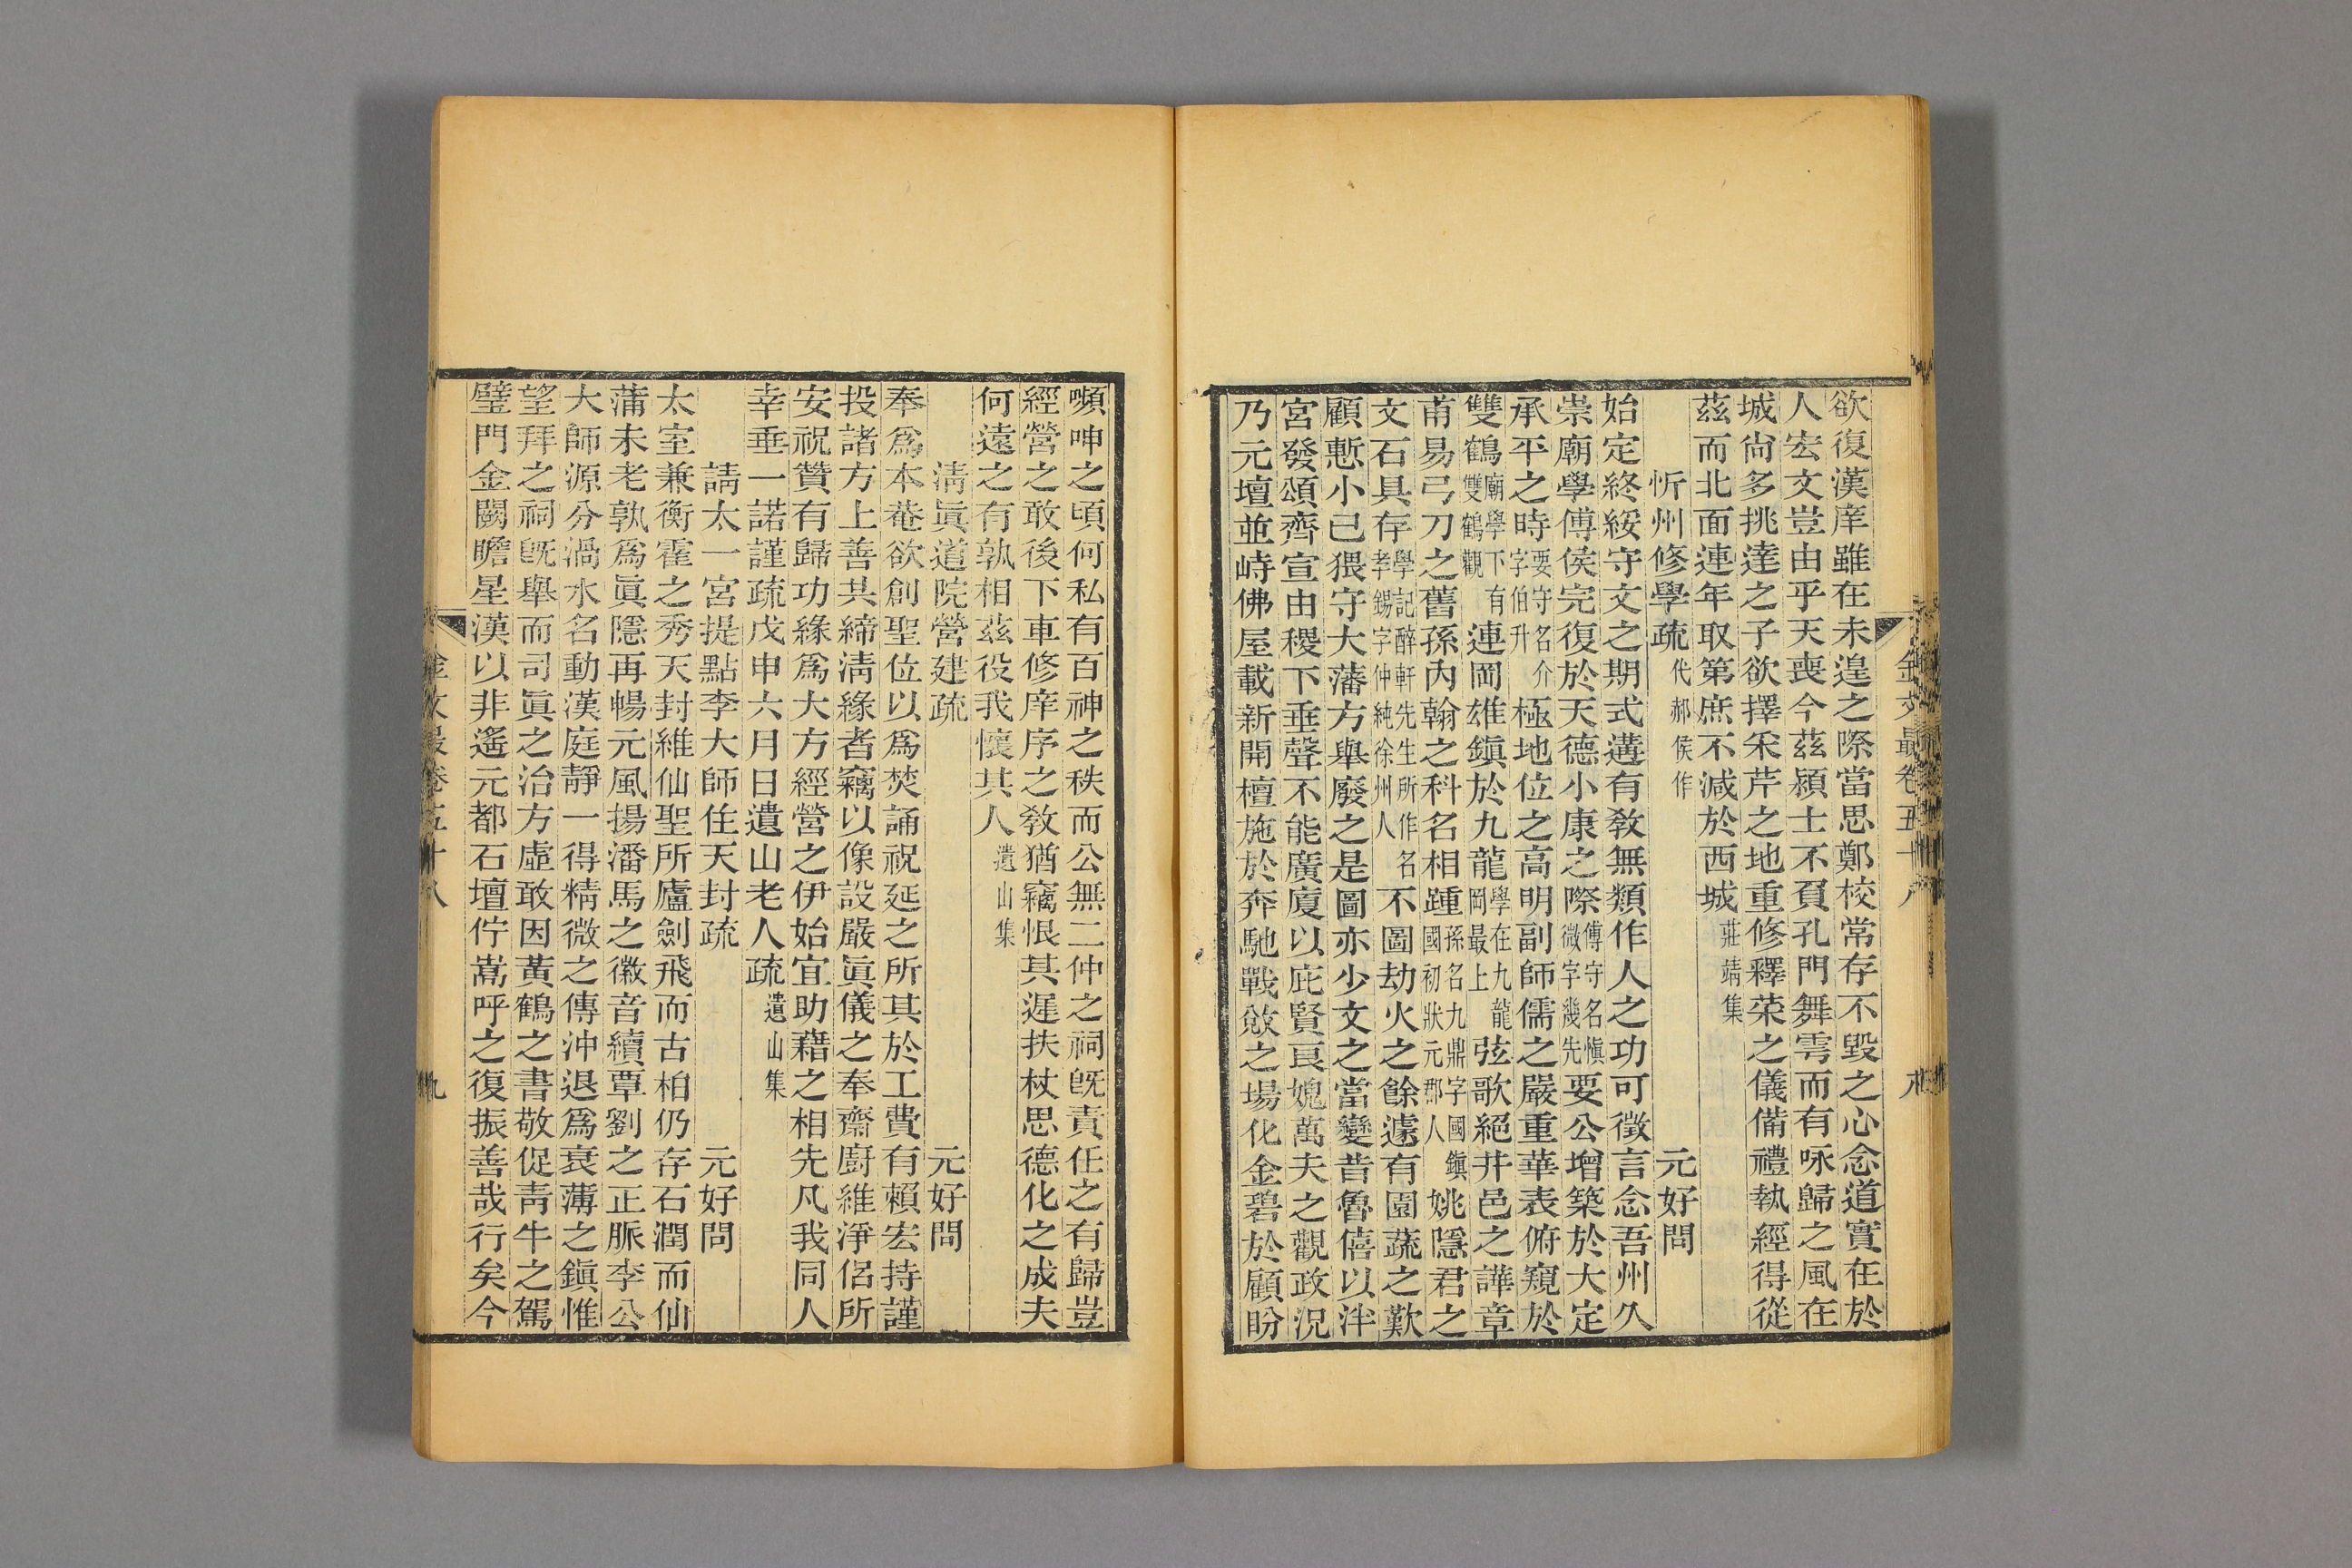 欲復漢庠雖在未遑之際當思鄭校常存不毀之心念道實在於
人宏文豈由乎天喪今茲潁士不負孔門舞雩而有咏歸之風在
城尚多挑達之子欲擇采芹之地重修釋菜之儀備禮執經得從
茲而北面連年取第庶不減於西城莊靖集
忻州修學疏代郝侯作 元好問
始定終綏守文之期式遘有敎無類作人之功可徵言念吾州久
崇廟學傅侯完復於天德小康之際傅守名愼微字幾先要公增築於大定
承平之時要守名介字伯升極地位之高明副師儒之嚴重華表俯窺於
雙鶴廟學下有雙鶴觀連岡雄鎭於九龍學在九龍岡最上弦歌絕井邑之譁章
甫易弓刀之舊孫內翰之科名相踵孫名九鼎字國鎭國初狀元郡人姚隱君之
文石具存學記醉軒先生所作名孝錫字仲純徐州人不圖劫火之餘遽有園蔬之歎
顧慙小己猥守大藩方舉廢之是圖亦少文之當變昔魯僖以泮
宮發頌齊宣由稷下垂聲不能廣廈以庇賢良媿萬夫之觀政況
乃元壇並峙佛屋載新開檀施於奔馳戰斂之場化金碧於顧盼
金文最卷五十八
嚬呻之頃何私有百神之秩而公無二仲之祠旣責任之有歸豈
經營之敢後下車修庠序之敎猶竊恨其遲扶杖思德化之成夫
何遠之有孰相茲役我懷其人遺山集
淸眞道院營建疏 元好問
奉爲本菴欲創聖位以爲焚誦祝延之所其於工費有賴宏持謹
投諸方上善共締淸緣者竊以像設嚴眞儀之奉齋廚維淨侶所
安祝贊有歸功緣爲大方經營之伊始宜助藉之相先凡我同人
幸垂一諾謹疏戊申六月日遺山老人疏遺山集
請太一宮提點李大師住天封疏 元好問
太室兼衡霍之秀天封維仙聖所廬劍飛而古柏仍存石潤而仙
蒲未老孰爲眞隱再暢元風揚潘馬之徽音續覃劉之正脈李公
大師源分渦水名動漢庭靜一得精微之傳沖退爲衰薄之鎭惟
望拜之祠旣舉而司眞之治方虛敢因黃鶴之書敬促靑牛之駕
璧門金闕瞻星漢以非遙元都石壇佇嵩呼之復振善哉行矣今
金文最卷五十八 九